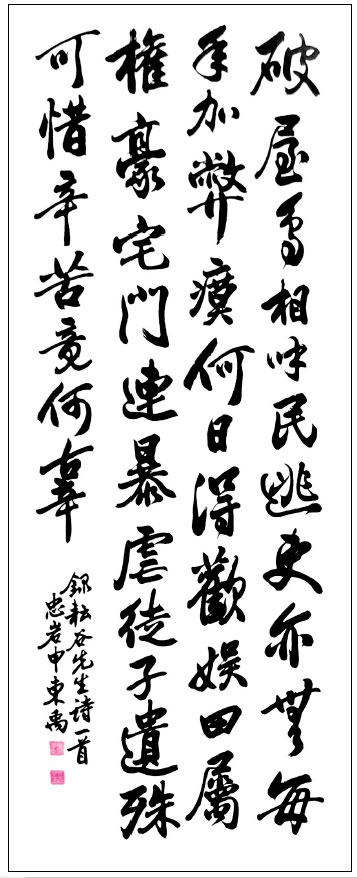 破屋鳥相呼民逃吏亦無每
年加弊瘼何日得歡娛田屬
權豪宅門連暴虐徒孑遺殊
可惜辛苦竟何辜
錄耘谷先生诗一首
忠岩申東禹